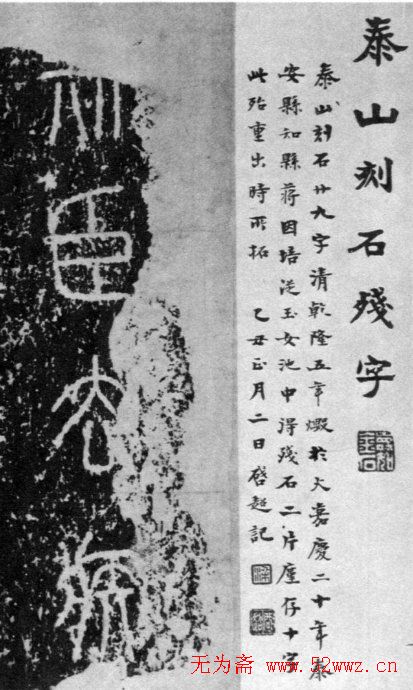 泰山刻石殘字
泰山刻石廿九字清乾隆五年燬於火嘉慶二十年泰
安縣知縣蔣因培從玉女池中得殘石二片廑存十字
此殆重出時所拓 乙丑正月二日啓超記
斯臣去疾
无为斋 www.52wwz.cn